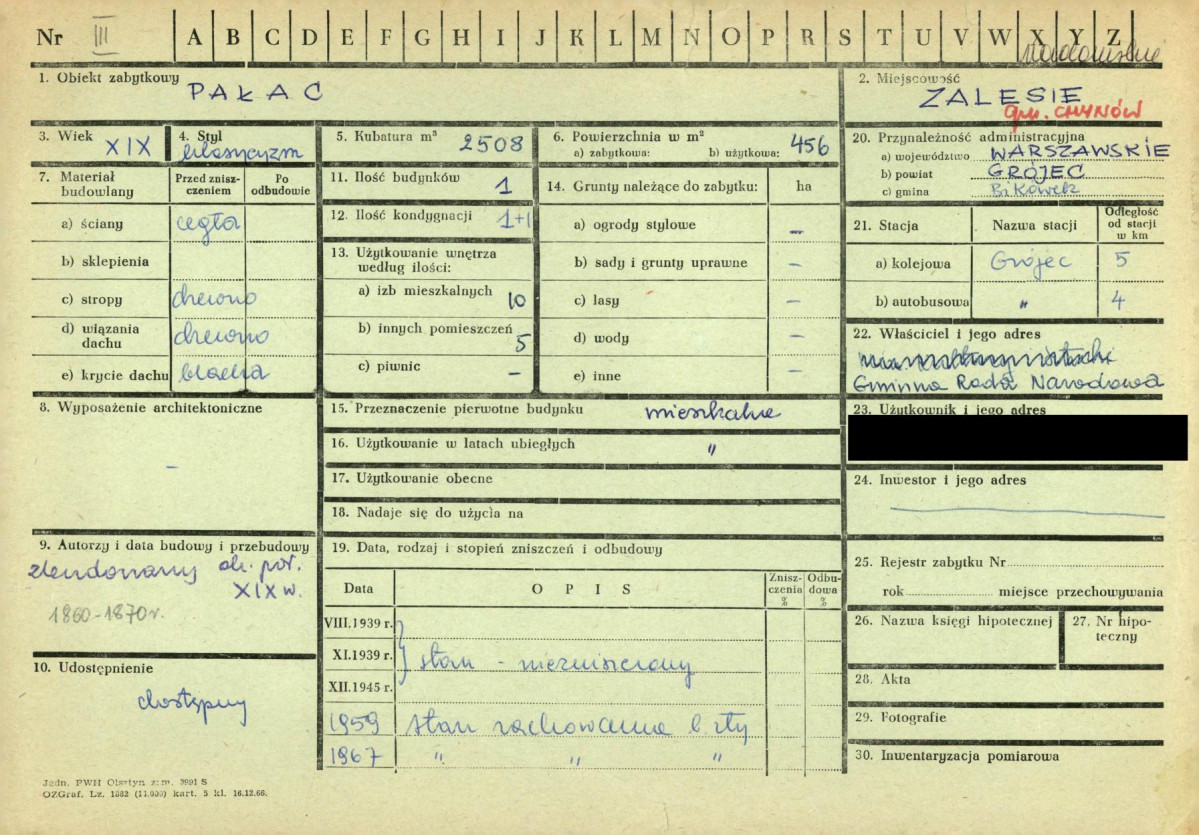 Nr III A B C D E F G H I J K L M N O P R S T U V W X Y Z
1. Obiekt zabytkowy
PAŁAC
2. Miejscowość
ZALESIE
gm. CHYNÓW
3. Wiek
XIX
4. Styl
klasycyzm
5. Kubatura m³ 2508
6. Powierzchnia w m²
a) zabytkowa: b) użytkowa: 456
7. Materiał budowlany
Przed zniszczeniem
Po odbudowie
a) ściany cegła
b) sklepienia
c) stropy drewno
d) wiązania dachu drewno
e) krycie dachu blacha
11. Ilość budynków 1
12. Ilość kondygnacji 1+1
13. Użytkowanie wnętrza
według ilości:
a) izb mieszkalnych 10
b) innych pomieszczeń 5
c) piwnic –
14. Grunty należące do zabytku: ha
a) ogrody stylowe –
b) sady i grunty uprawne –
c) lasy –
d) wody –
e) inne –
20. Przynależność administracyjna
a) województwo WARSZAWSKIE
b) powiat GRÓJEC
c) gmina
21. Stacja Nazwa stacji Odległość od stacji w km
a) kolejowa Grójec 5
b) autobusowa " 4
22. Właściciel i jego adres
Gminna Rada Narodowa
23. Użytkownik i jego adres
24. Inwestor i jego adres
8. Wyposażenie architektoniczne
–
15. Przeznaczenie pierwotne budynku mieszkalne
16. Użytkowanie w latach ubiegłych "
17. Użytkowanie obecne
18. Nadaje się do użycia na
9. Autorzy i data budowy i przebudowy
zbudowany ok. poł.
XIX w.
1860-1870 r.
10. Udostępnienie
dostępny
19. Data, rodzaj i stopień zniszczeń i odbudowy
Data OPIS Zniszczenia % Odbudowa %
VIII.1939 r.
XI.1939 r. stan - niezniszczony
XII.1945 r.
1959 stan zachowania b. zły
1967 " " "
25. Rejestr zabytku Nr
rok miejsce przechowywania
26. Nazwa księgi hipotecznej
27. Nr hipoteczny
28. Akta
29. Fotografie
30. Inwentaryzacja pomiarowa
Jedn. PWH Olsztyn z:m. 3991 S
OZGraf. Lz. 1882 (11.000) kart. 5 kl. 16.12.66.